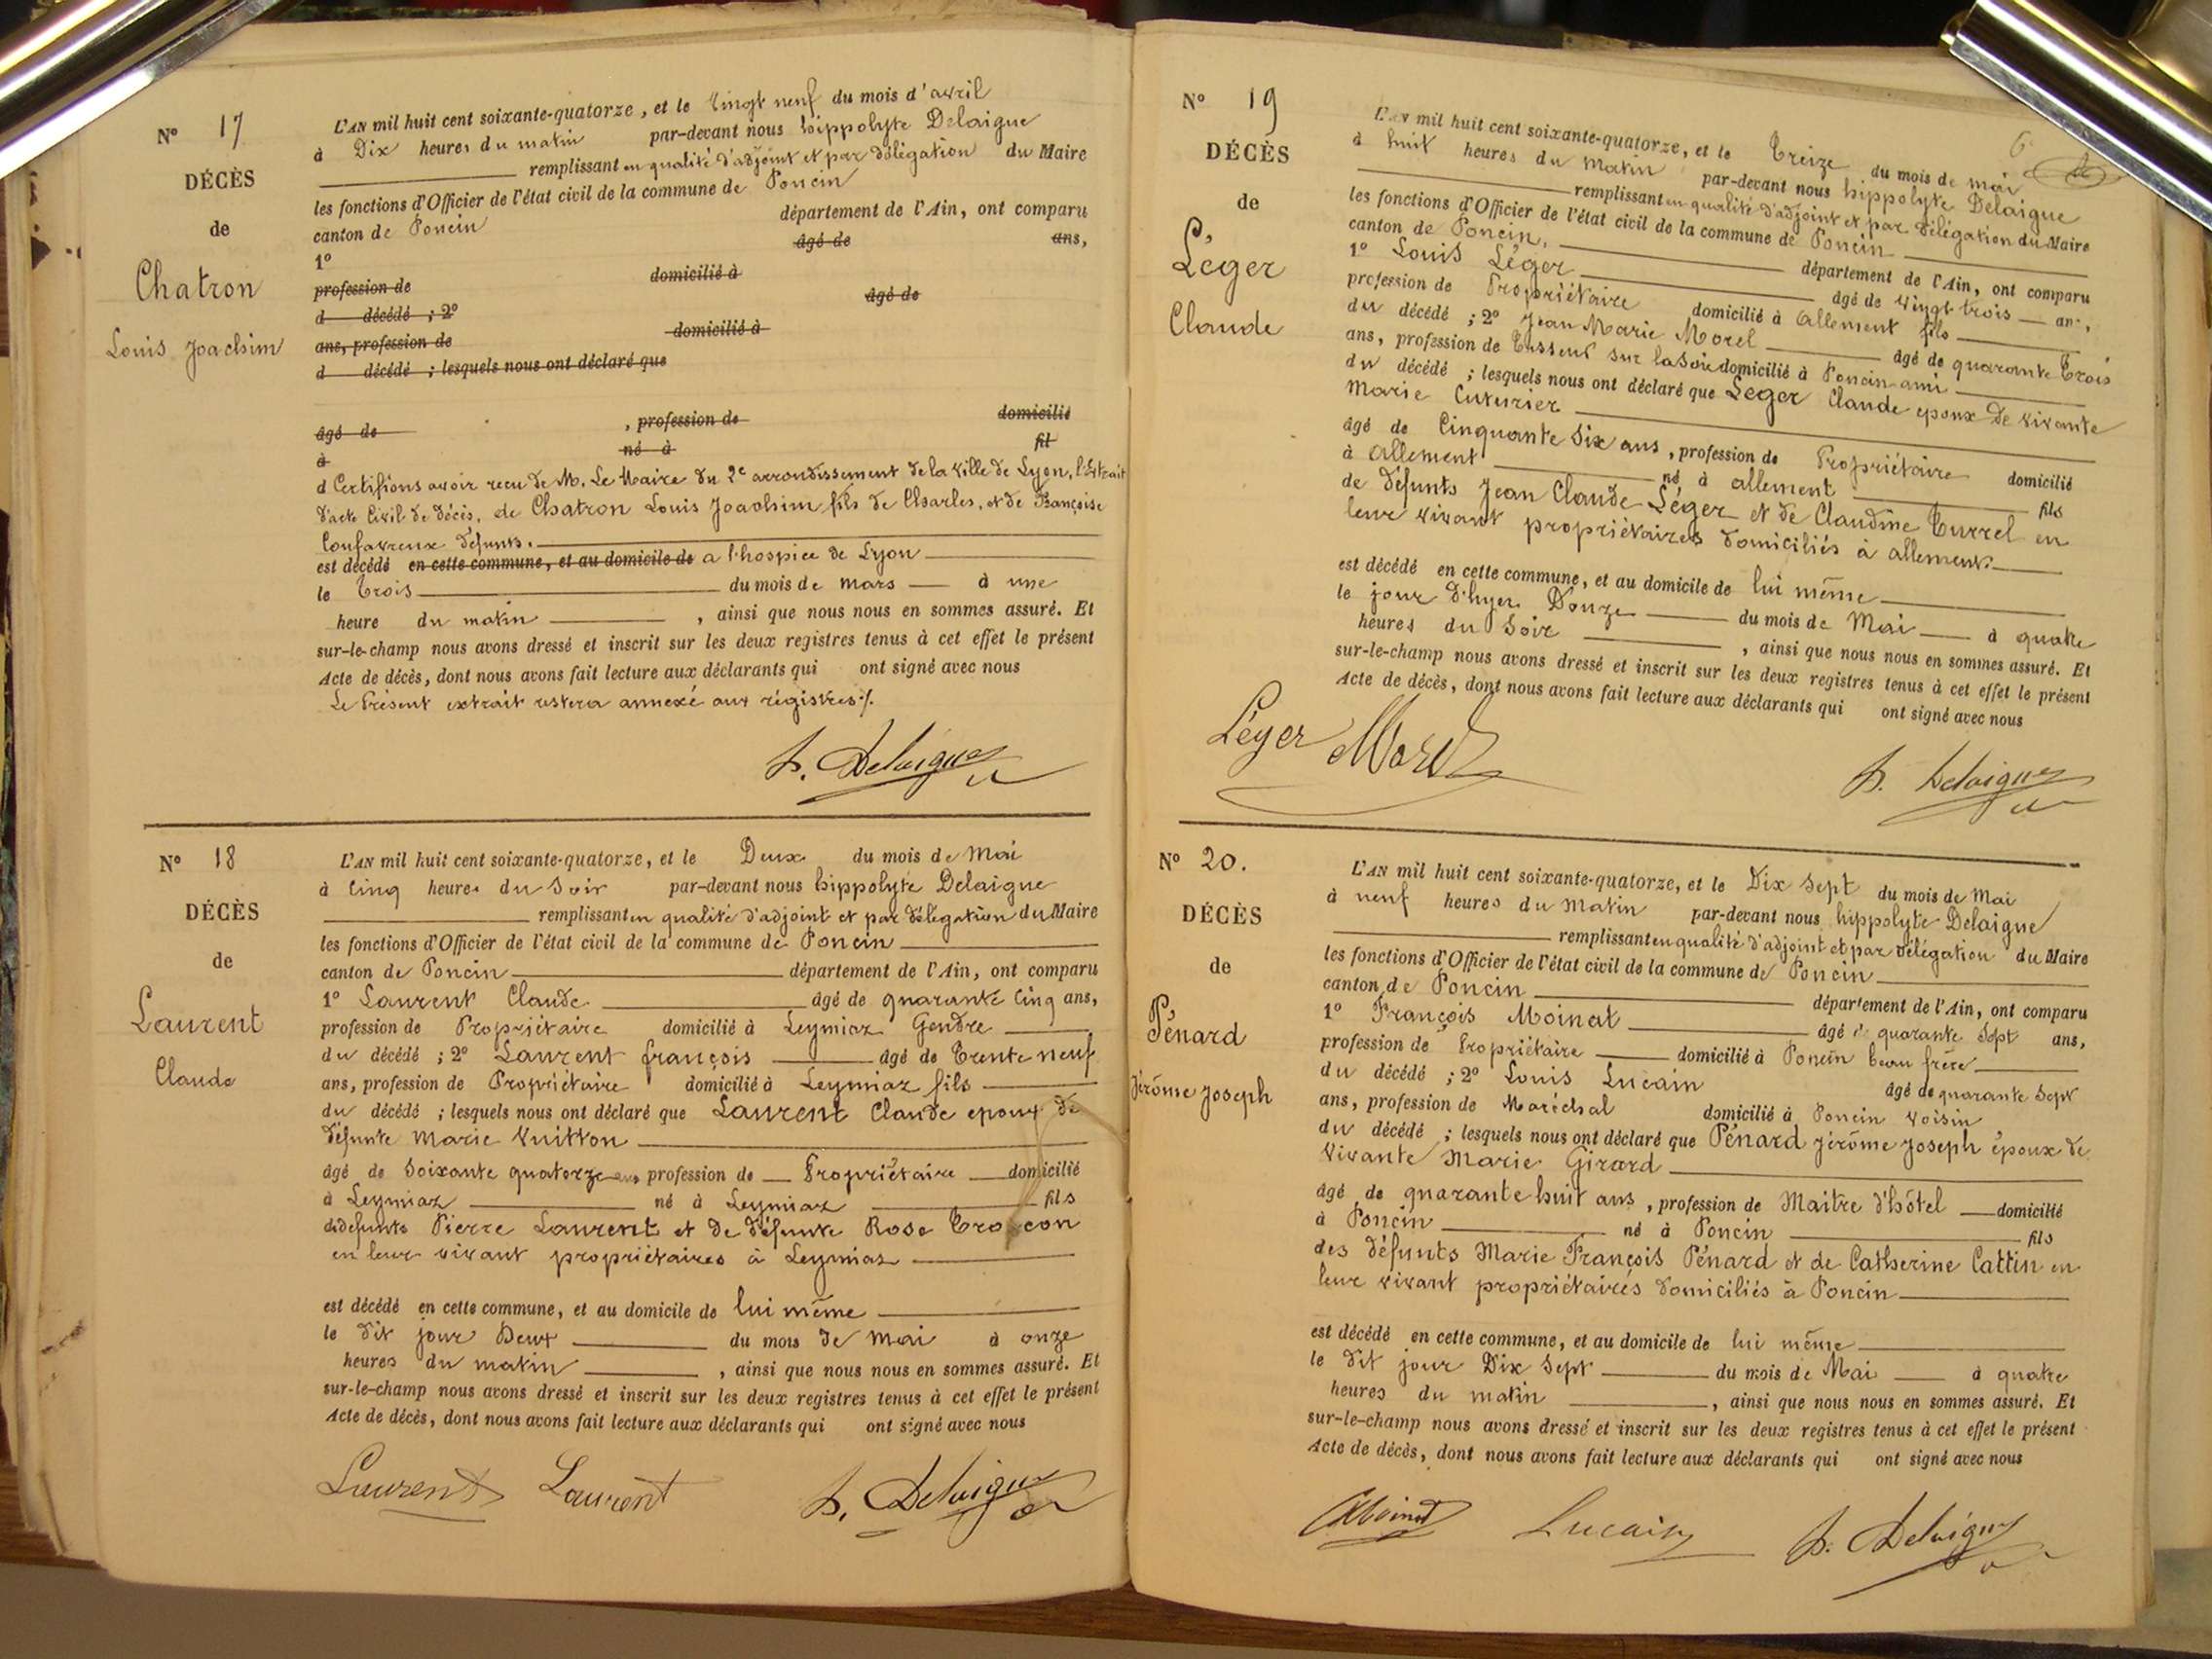 N° 17
DÉCÈS
de
Chatron
Louis Joachim
L'AN mil huit cent soixante-quatorze, et le Vingt neuf du mois d'avril
à Dix heures du matin par-devant nous hippolyte Delaigue
remplissant en qualité d'adjoint et par délégation du Maire
les fonctions d'Officier de l'état civil de la commune de Poncin
canton de Poncin département de l'Ain, ont comparu
1° âgé de ans,
profession de domicilié à
d décédé ; 2° âgé de
ans, profession de domicilié à
d décédé ; lesquels nous ont déclaré que
âgé de , profession de domicilié
à né à fil
d Certifions avoir reçu de M. Le Maire du 2e arrondissement de la ville de Lyon, l'Extrait
d'acte Civil de décès, de Chatron Louis Joachim fils de Charles, et de Françoise
Confavreux défunts.
est décédé en cette commune, et au domicile de a l'hospice de Lyon
le trois du mois de mars à une
heure du matin , ainsi que nous nous en sommes assuré. Et
sur-le-champ nous avons dressé et inscrit sur les deux registres tenus à cet effet le présent
Acte de décès, dont nous avons fait lecture aux déclarants qui ont signé avec nous
Le Présent extrait restera annexé aux régistres ./.
h. Delaigue
N° 18
DÉCÈS
de
Laurent
Claude
L'AN mil huit cent soixante-quatorze, et le Deux du mois de Mai
à Cinq heures du Soir par-devant nous hippolyte Delaigue
remplissant en qualité d'adjoint et par délégation du Maire
les fonctions d'Officier de l'état civil de la commune de Poncin
canton de Poncin département de l'Ain, ont comparu
1° Laurent Claude âgé de quarante Cinq ans,
profession de Propriétaire domicilié à Leymiaz Gendre
du décédé ; 2° Laurent françois âgé de Trente neuf
ans, profession de Propriétaire domicilié à Leymiaz fils
du décédé ; lesquels nous ont déclaré que Laurent Claude epoux de
défunte Marie Vuitton
âgé de Soixante quatorze ans profession de Propriétaire domicilié
à Leymiaz né à Leymiaz fils
de défunts Pierre Laurent et de défunte Rose
en leur vivant propriétaires à Leymiaz
est décédé en cette commune, et au domicile de lui même
le dit jour Deux du mois de Mai à onze
heures du matin , ainsi que nous nous en sommes assuré. Et
sur-le-champ nous avons dressé et inscrit sur les deux registres tenus à cet effet le présent
Acte de décès, dont nous avons fait lecture aux déclarants qui ont signé avec nous
Laurent Laurent h. Delaigue
N° 19
DÉCÈS
de
Léger
Claude
L'AN mil huit cent soixante-quatorze, et le Treize du mois de mai
à huit heures du Matin par-devant nous hippolyte Delaigue
remplissant en qualité d'adjoint et par délégation du Maire
les fonctions d'Officier de l'état civil de la commune de Poncin
canton de Poncin, département de l'Ain, ont comparu
1° Louis Léger âgé de vingt trois ans,
profession de Propriétaire domicilié à allement fils
du décédé ; 2° Jean Marie Morel âgé de quarante Trois
ans, profession de Tisseur sur la Soie domicilié à Poncin ami
du décédé ; lesquels nous ont déclaré que Leger Claude epoux de vivante
Marie Cuturier
âgé de Cinquante Six ans, profession de Propriétaire domicilié
à allement né à allement fils
de défunts Jean Claude Léger et de Claudine Turrel en
leur vivant propriétaires domiciliés à allement.
est décédé en cette commune, et au domicile de lui même
le jour d'hyer Douze du mois de Mai à quatre
heures du Soir , ainsi que nous nous en sommes assuré. Et
sur-le-champ nous avons dressé et inscrit sur les deux registres tenus à cet effet le présent
Acte de décès, dont nous avons fait lecture aux déclarants qui ont signé avec nous
Léger Morel h. Delaigue
N° 20.
DÉCÈS
de
Pénard
Jérôme Joseph
L'AN mil huit cent soixante-quatorze, et le Dix Sept du mois de Mai
à neuf heures du Matin par-devant nous hippolyte Delaigue
remplissant en qualité d'adjoint et par délégation du Maire
les fonctions d'Officier de l'état civil de la commune de Poncin
canton de Poncin département de l'Ain, ont comparu
1° François Moinat âgé de quarante Sept ans,
profession de Propriétaire domicilié à Poncin beau frère
du décédé ; 2° Louis Lucain âgé de quarante Sept
ans, profession de Maréchal domicilié à Poncin voisin
du décédé ; lesquels nous ont déclaré que Pénard Jérôme Joseph époux de
Vivante Marie Girard
âgé de quarante huit ans, profession de Maitre d'hôtel domicilié
à Poncin né à Poncin fils
des défunts Marie François Pénard et de Catherine Cattin en
leur vivant propriétaires domiciliés à Poncin
est décédé en cette commune, et au domicile de lui même
le dit jour Dix Sept du mois de Mai à quatre
heures du matin , ainsi que nous nous en sommes assuré. Et
sur-le-champ nous avons dressé et inscrit sur les deux registres tenus à cet effet le présent
Acte de décès, dont nous avons fait lecture aux déclarants qui ont signé avec nous
Moinat Lucain h. Delaigue